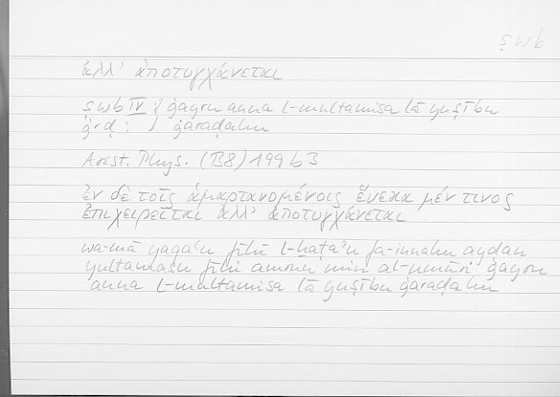 ṣwb
ἀλλ' ἀποτυγχάνεται
ṣwb IV ; ġayra anna l-multamisa lā yuṣību
ġrḍ : ) ġaraḍahu
Arist. Phys. (B8) 199 b 3
ἐν δὲ τοῖς ἁμαρτανομένοις ἕνεκα μέν τινος
ἐπιχειρεῖται ἀλλ' ἀποτυγχάνεται
wa-mā yaqaʿu fīhi l-ḫaṭaʾu fa-innahu ayḍan
yultamasu fīhi amrun min al-umūri ġayra
anna l-multamisa lā yuṣību ġaraḍahu